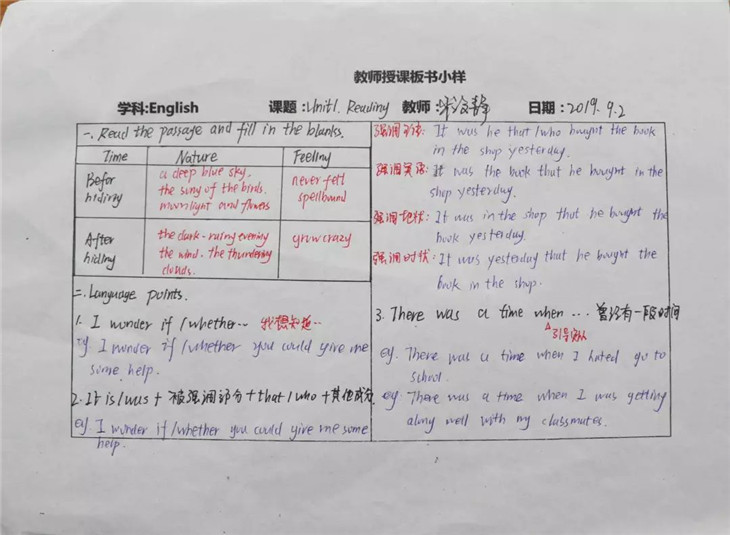 教师授课板书小样
学科:English 课题:Unit1. Reading 教师: 日期:2019.9.2
一. Read the passage and fill in the blanks.
Time Nature Feeling
Befor hiding
a deep blue sky.
the song of the birds.
moonlight and flowers
never felt
spellbound
After
hiding
the dark. rainy evening
the wind. the thundering
clouds.
grow crazy
二. Language points.
1. I wonder if /whether... 我想知道...
eg. I wonder if /whether you could give me
some help.
2. It is/was + 被强调部分 + that / who + 其他成分.
eg. I wonder if /whether you could give me some
help.
强调主语: It was he that /who bought the book
in the shop yesterday.
强调宾语: It was the book that he bought in the
shop yesterday.
强调地状: It was in the shop that he bought the
book yesterday.
强调时状: It was yesterday that he bought the
book in the shop.
3. There was a time when ... 曾经有一段时间
引导
eg. There was a time when I hated go to
school.
eg. There was a time when I was getting
along well with my classmates.